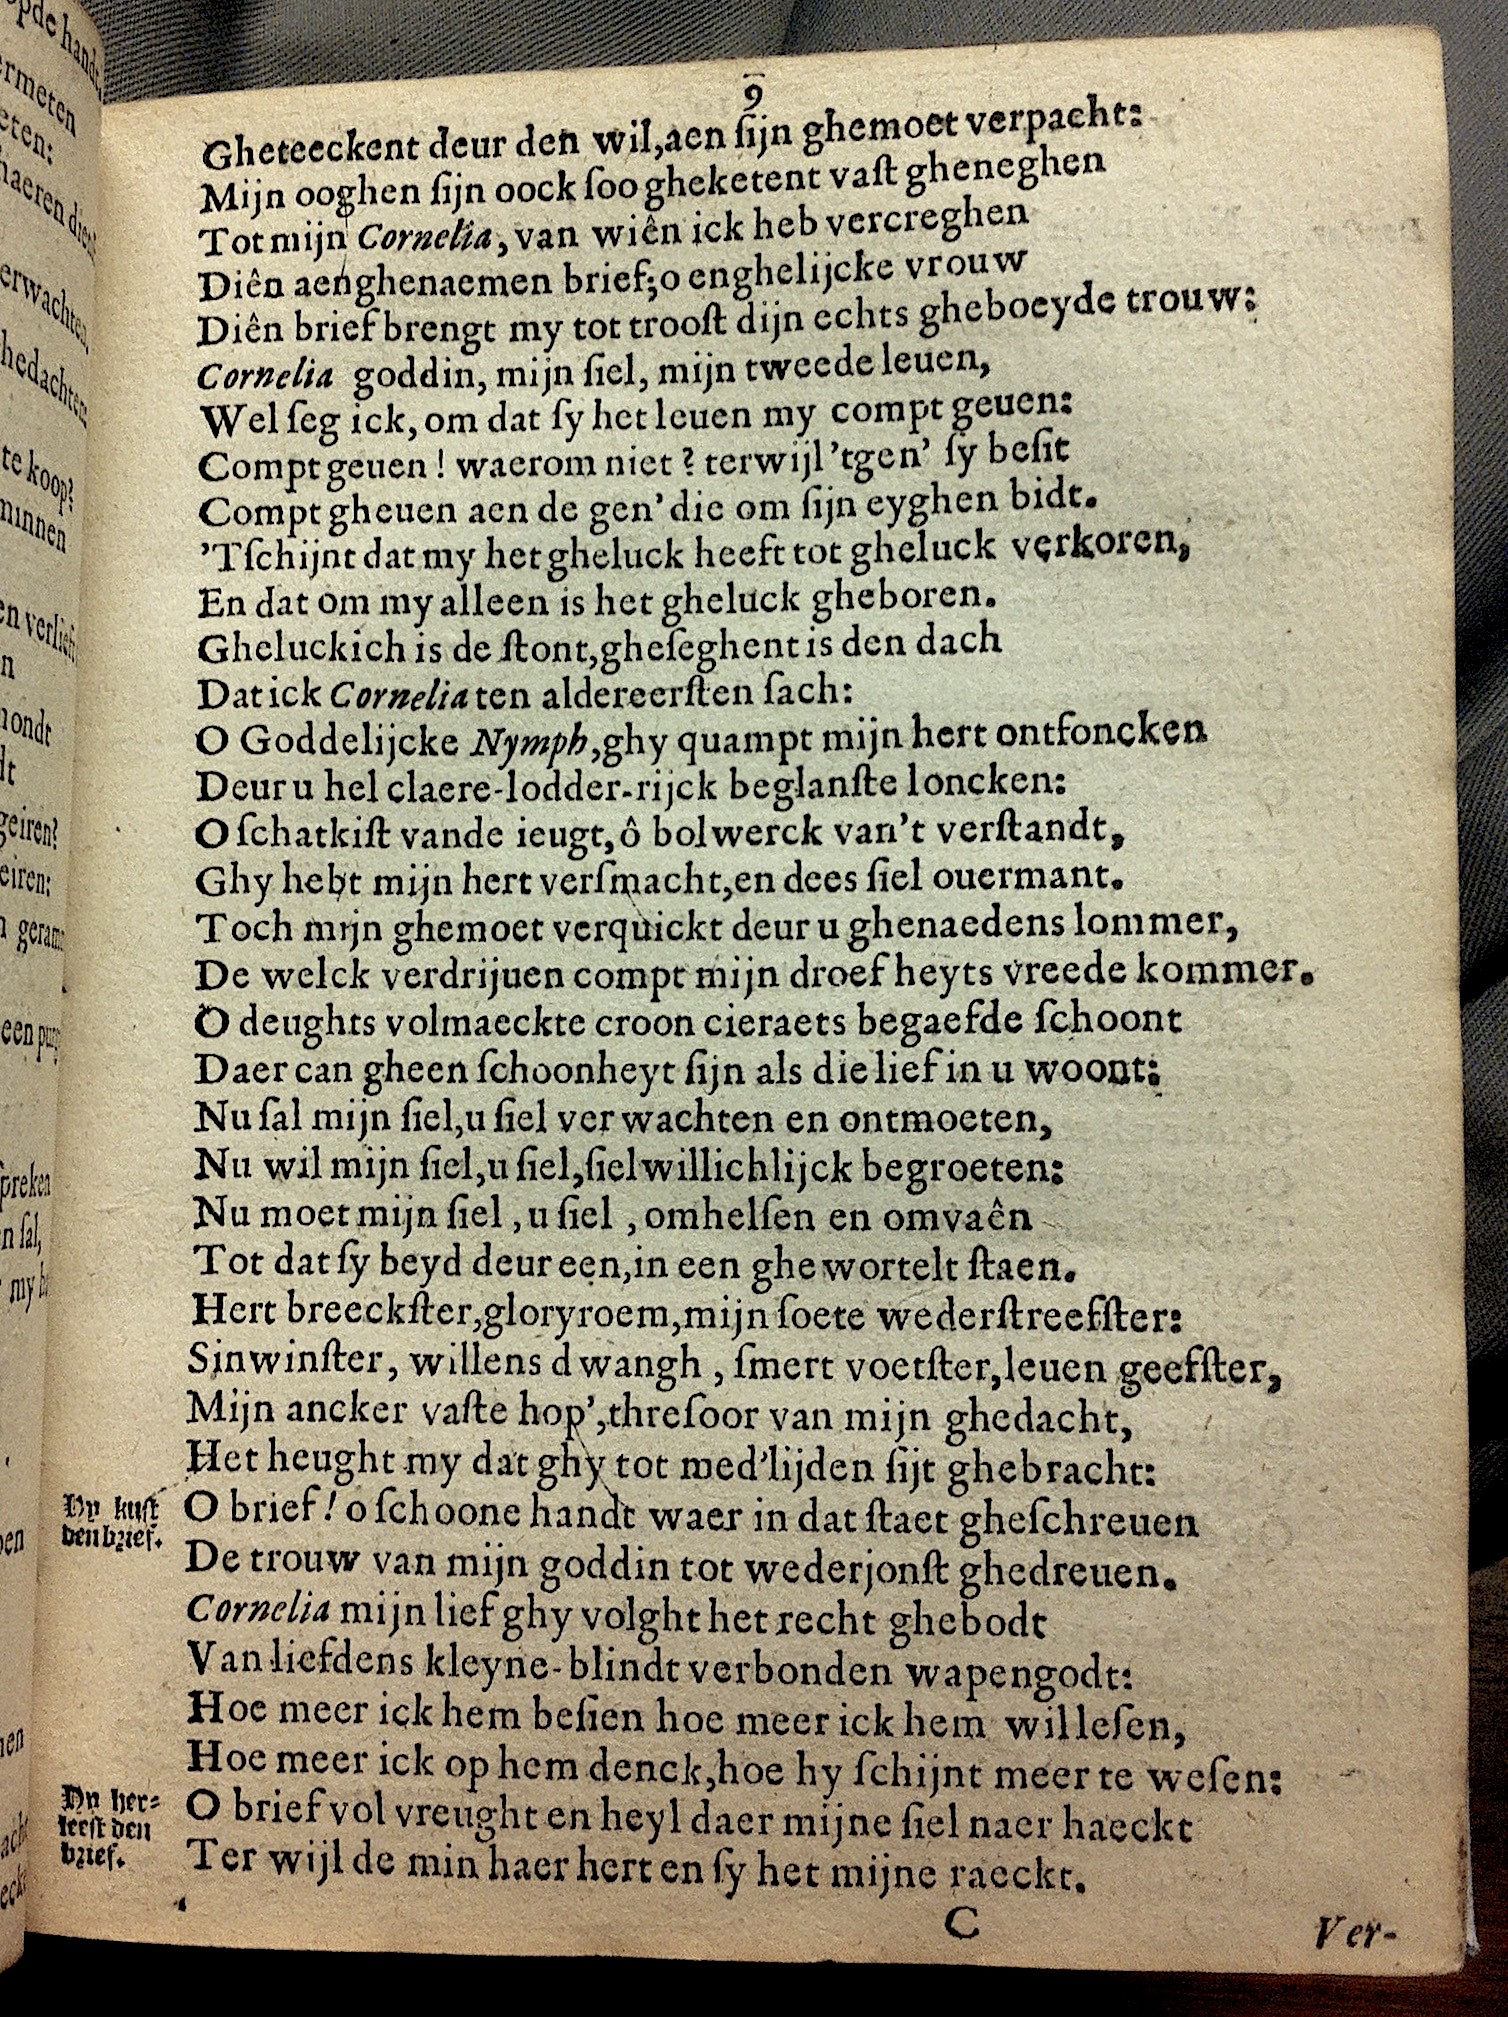 9
Gheteeckent deur den wil, aen ſijn ghemoet verpacht:
Mijn ooghen ſijn oock ſoo gheketent vaſt gheneghen
Tot mijn Cornelia, van wiên ick heb vercreghen
Diên aenghenaemen brief; o enghelijcke vrouw
Diên brief brengt my tot trooſt dijn echts gheboeyde trouw:
Cornelia goddin, mijn ſiel, mijn tweede leuen,
Wel ſeg ick, om dat ſy het leuen my compt geuen:
Compt geuen! waerom niet? terwijl 'tgen' ſy beſit
Compt gheuen aen de gen' die om ſijn eyghen bidt.
'Tſchijnt dat my het gheluck heeft tot gheluck verkoren,
En dat om my alleen is het gheluck gheboren.
Gheluckich is de ſtont, gheſeghent is den dach
Dat ick Cornelia ten aldereerſten ſach:
O Goddelijcke Nymph, ghy quampt mijn hert ontfoncken
Deur u hel claere-lodder-rijck beglanſte loncken:
O ſchatkiſt vande ieugt, ô bolwerck van't verſtandt,
Ghy hebt mijn hert verſmacht, en dees ſiel ouermant.
Toch mijn ghemoet verquickt deur u ghenaedens lommer,
De welck verdrijuen compt mijn droef heyts vreede kommer.
O deughts volmaeckte croon cieraets begaefde ſchoont
Daer can gheen ſchoonheyt ſijn als die lief in u woont:
Nu ſal mijn ſiel, u ſiel verwachten en ontmoeten,
Nu wil mijn ſiel, u ſiel, ſielwillichlijck begroeten:
Nu moet mijn ſiel, u ſiel, omhelſen en omvaên
Tot dat ſy beyd deur een, in een ghewortelt ſtaen.
Hert breeckſter, gloryroem, mijn ſoete wederſtreefſter:
Sinwinſter, willens dwangh, ſmert voetſter, leuen geefſter,
Mijn ancker vaſte hop', threſoor van mijn ghedacht,
Het heught my dat ghy tot med'lijden ſijt ghebracht:
Hy kuſt
den brief.
O brief! o ſchoone handt waer in dat ſtaet gheſchreuen
De trouw van mijn goddin tot wederjonſt ghedreuen.
Cornelia mijn lief ghy volght het recht ghebodt
Van liefdens kleyne-blindt verbonden wapengodt:
Hoe meer ick hem beſien hoe meer ick hem wil leſen,
Hoe meer ick op hem denck, hoe hy ſchijnt meer te weſen:
Hy her-
leeſt den
brief.
O brief vol vreught en heyl daer mijne ſiel naer haeckt
Ter wijl de min haer hert en ſy het mijne raeckt.
C
Ver-